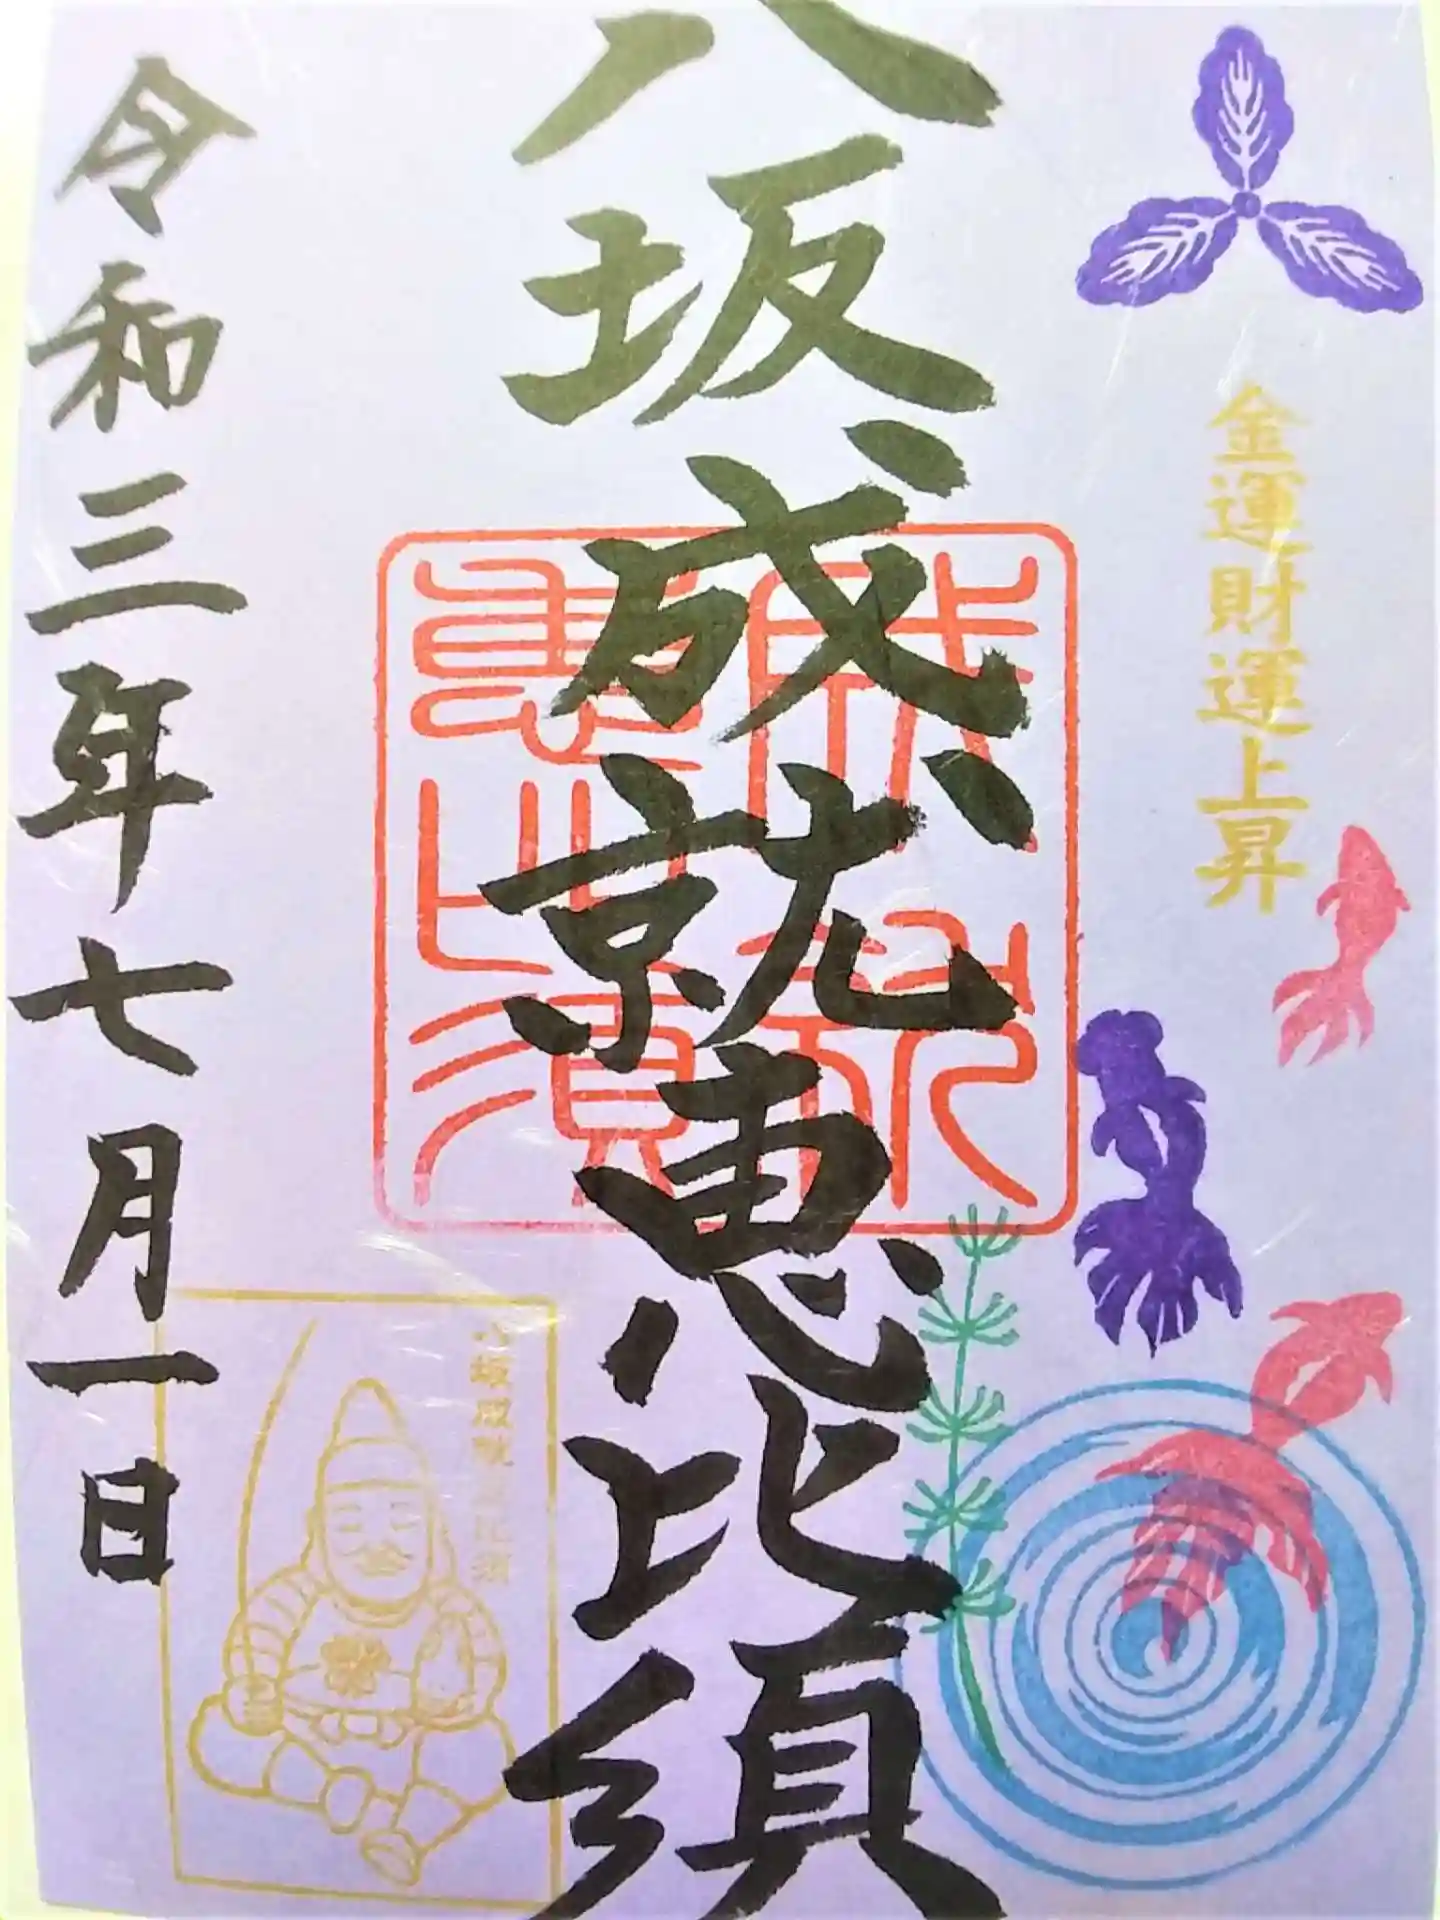 金運財運上昇
八坂成就恵比須
成就恵比須
令和三年七月一日